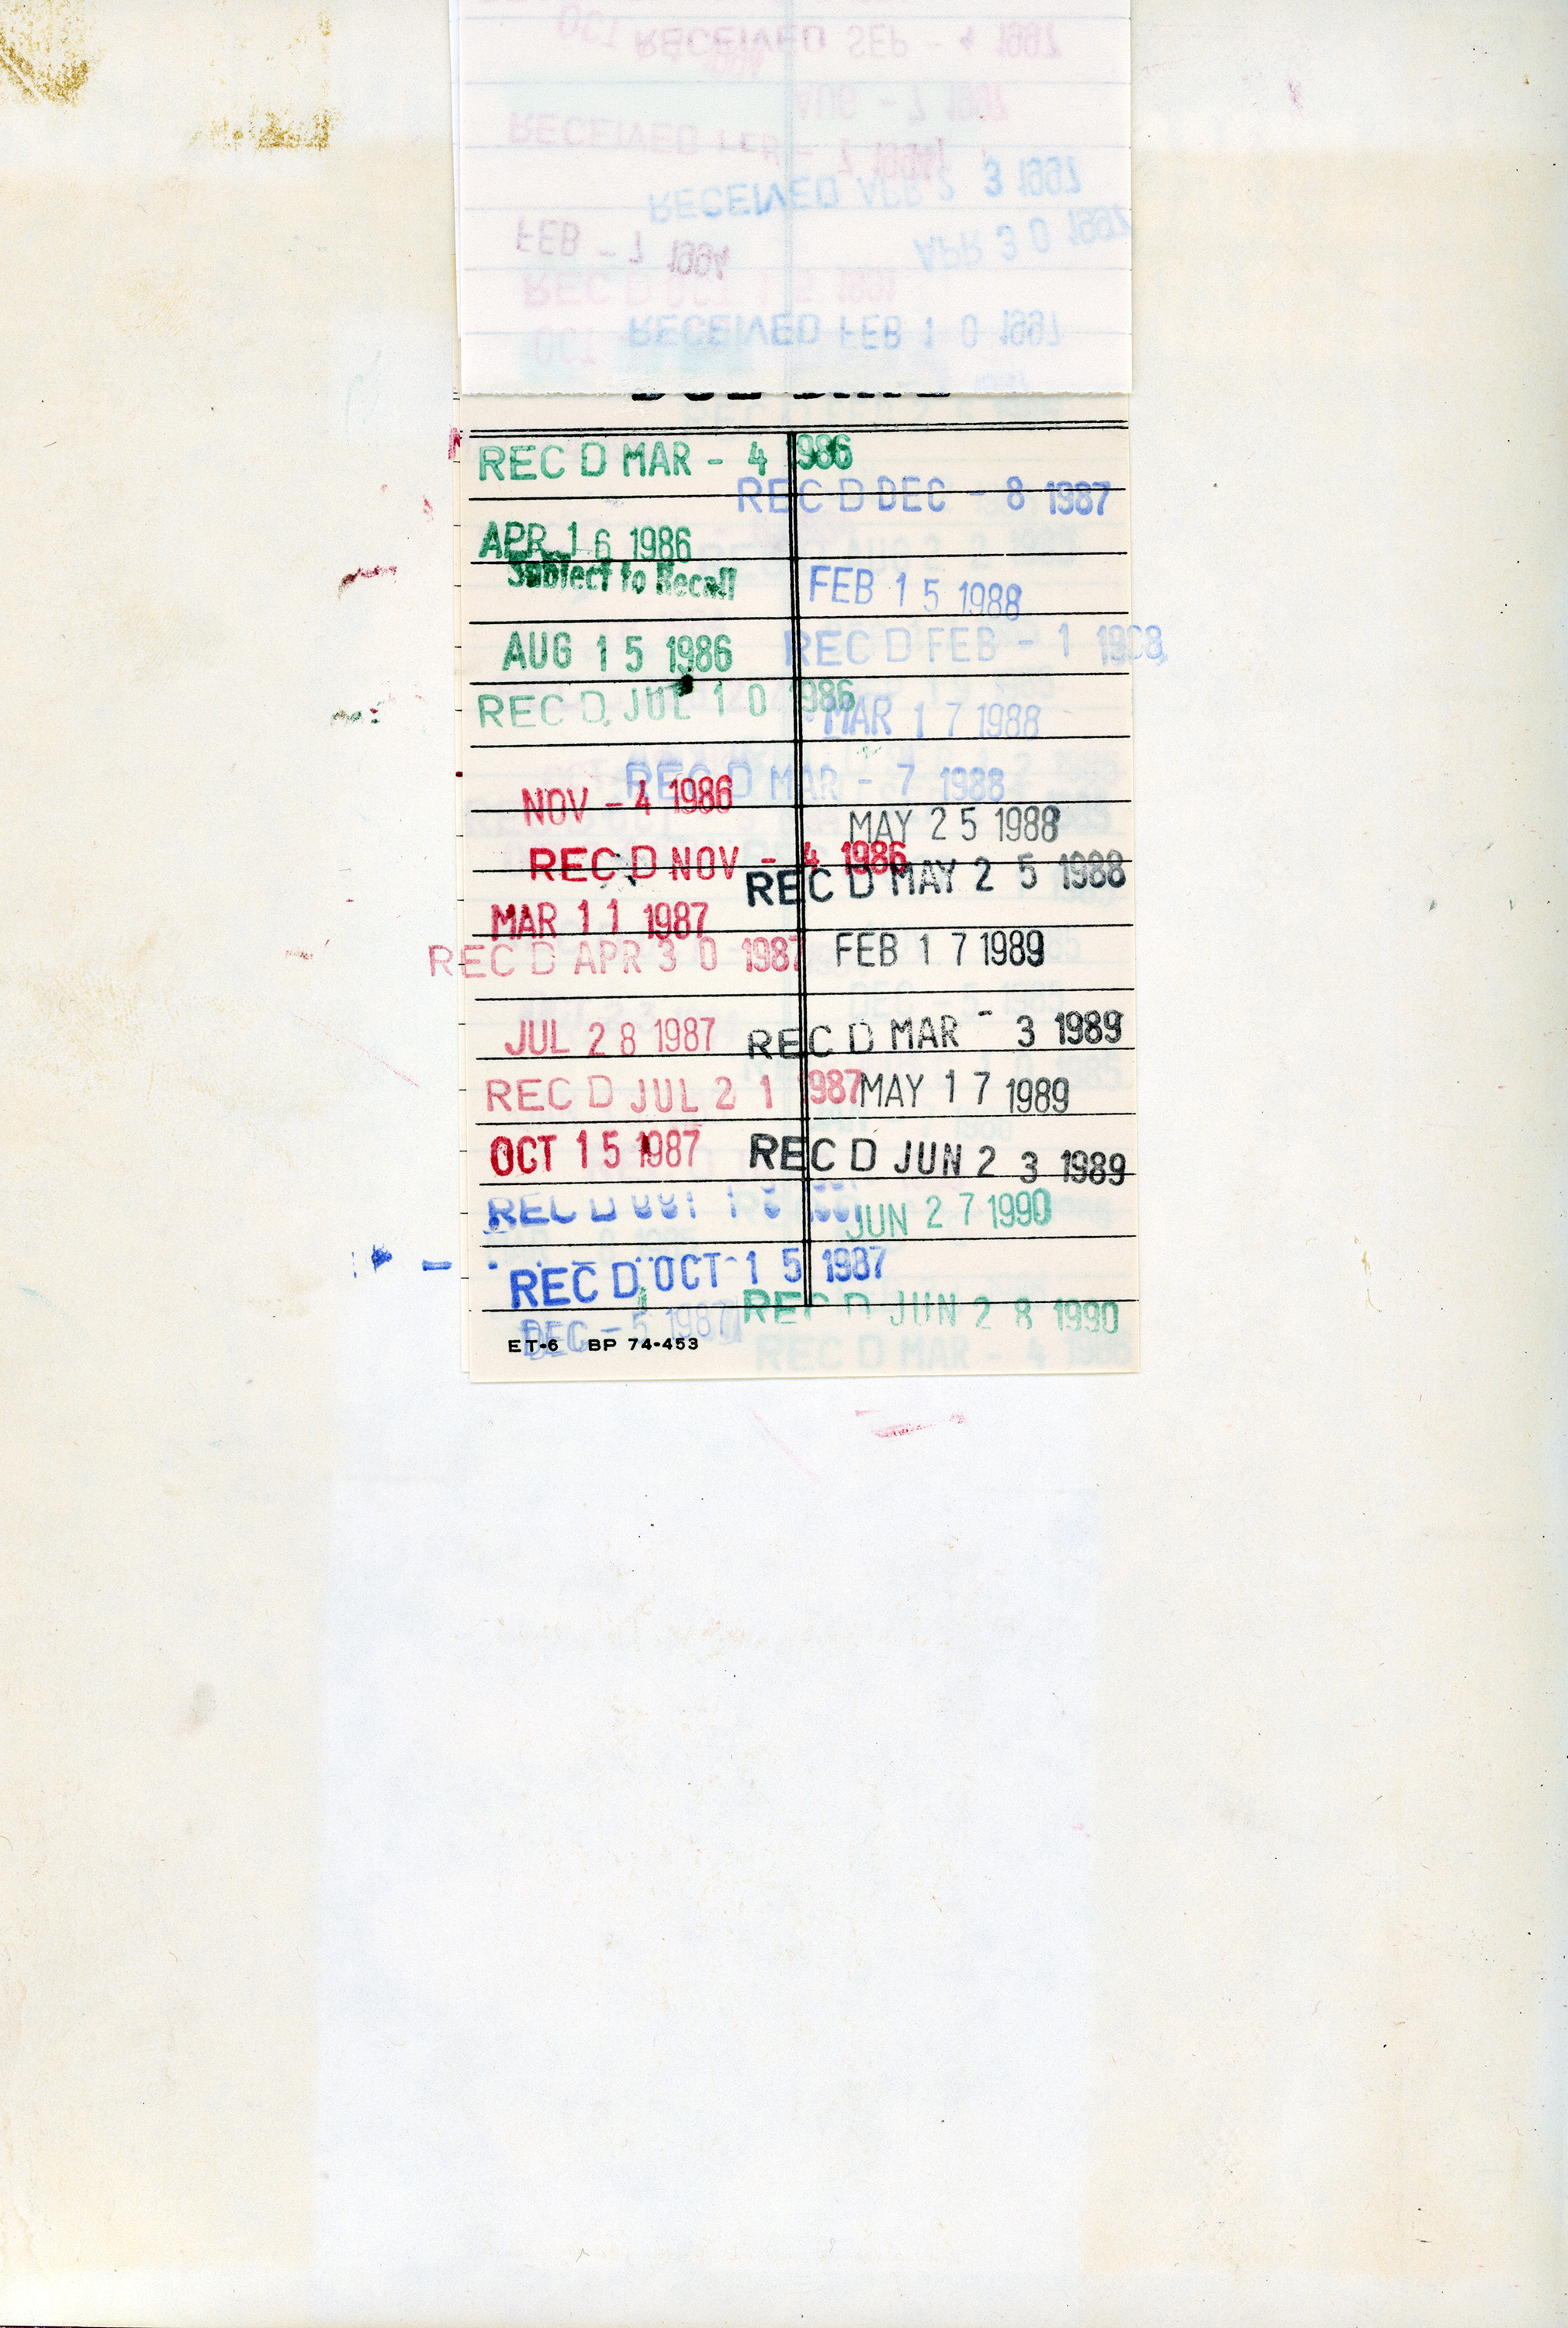 RECEIVED SEP - 4 1997
AUG - 7 1997
RECEIVED FEB - 7 1994
RECEIVED APR 2 3 1997
FEB - 7 1994
APR 3 0 1997
RECEIVED FEB 1 0 1997
REC D MAR - 4 1986
APR 1 6 1986
Subject to Recall
AUG 1 5 1986
REC D JUL 1 0 1986
NOV - 4 1986
REC D NOV - 4 1986
MAR 1 1 1987
REC D APR 3 0 1987
JUL 2 8 1987
REC D JUL 2 1 1987
OCT 1 5 1987
REC D OCT 1 5 1987
DEC - 5 1987
ET-6 BP 74-453
REC D DEC - 8 1987
FEB 1 5 1988
REC D FEB - 1 1988
MAR 1 7 1988
REC D MAR - 7 1988
MAY 2 5 1988
REC D MAY 2 5 1988
FEB 1 7 1989
REC D MAR - 3 1989
MAY 1 7 1989
REC D JUN 2 3 1989
JUN 2 7 1990
REC D JUN 2 8 1990
REC D MAR - 4 1986